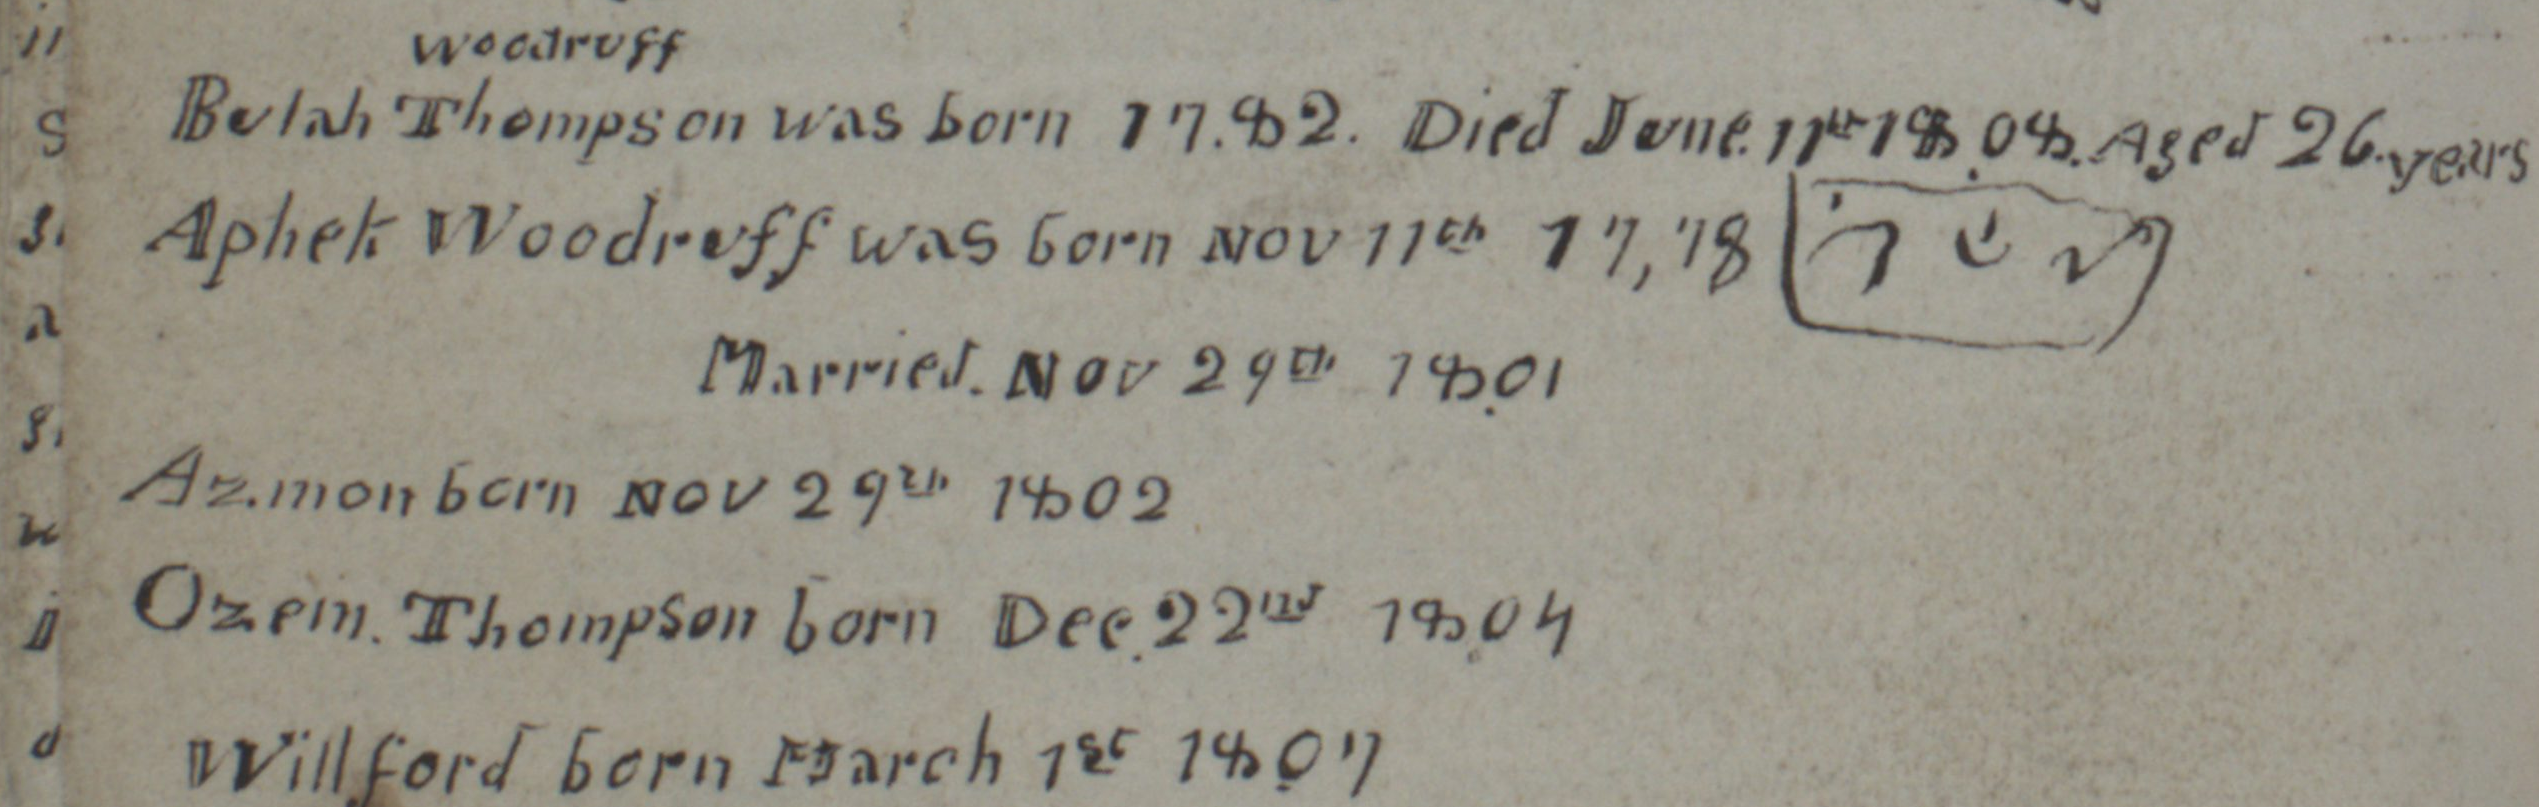 Woodruff
Bulah Thompson was born 17.82. Died June 11th 1808. Aged 26 years
Aphek Woodruff was born Nov 11th 17,78
Married. Nov 29th 1801
Azmon born Nov 29th 1802
Ozem. Thompson born Dec. 22nd 1804
Willford born March 1st 1807